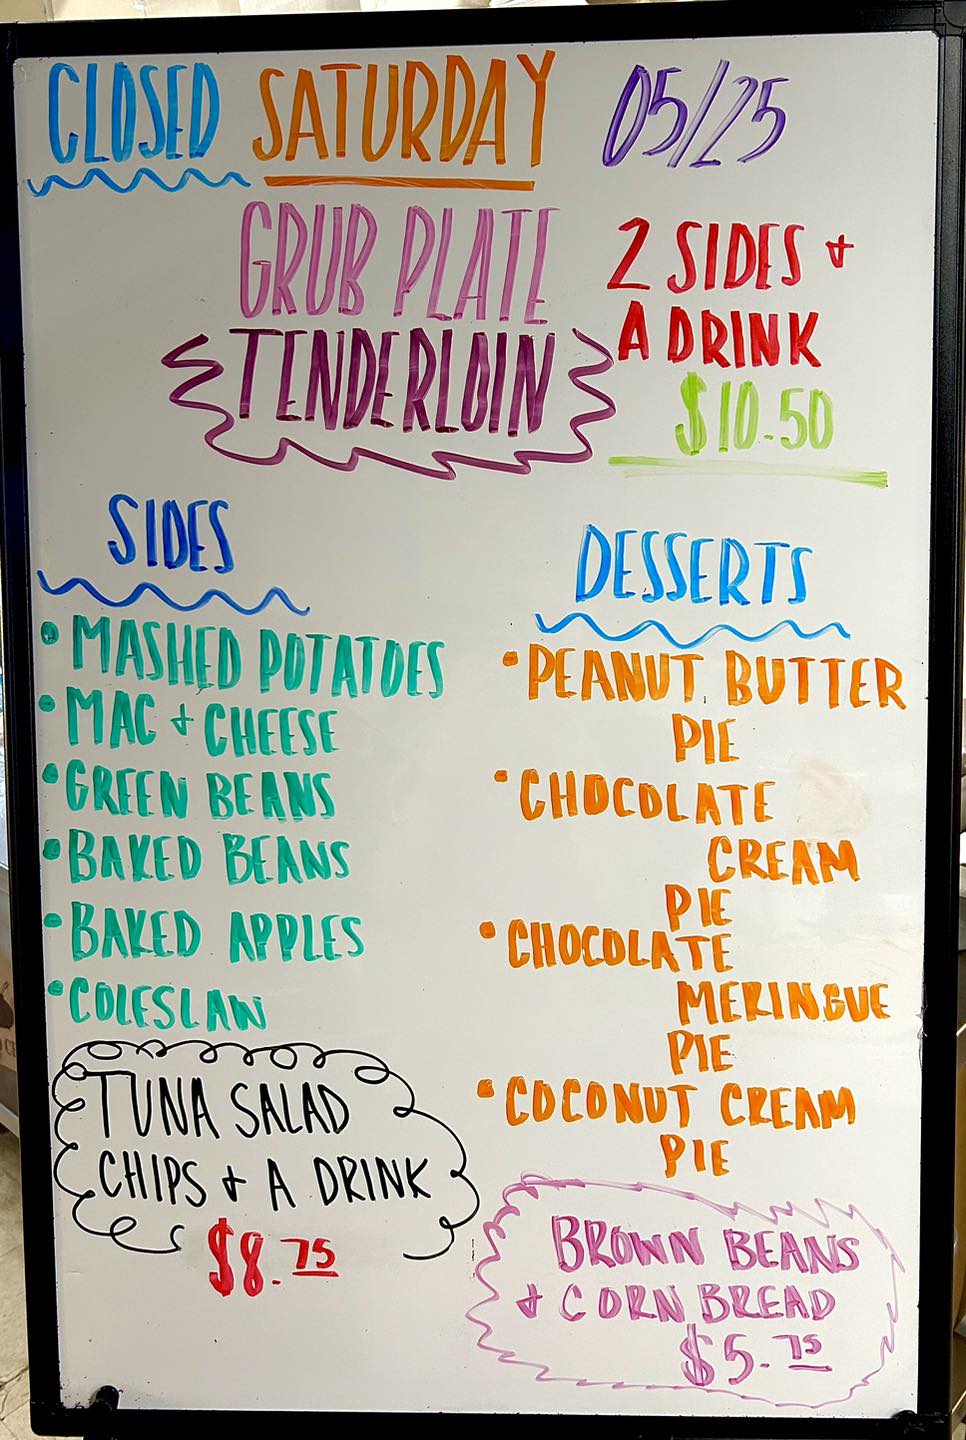 CLOSED SATURDAY 05/25
GRUB PLATE
TENDERLOIN
2 SIDES +
A DRINK
$10.50
SIDES
• MASHED POTATOES
• MAC + CHEESE
• GREEN BEANS
• BAKED BEANS
• BAKED APPLES
• COLESLAW
DESSERTS
• PEANUT BUTTER
PIE
• CHOCOLATE
CREAM
PIE
• CHOCOLATE
MERINGUE
PIE
• COCONUT CREAM
PIE
TUNA SALAD
CHIPS + A DRINK
$8.75
BROWN BEANS
+ CORN BREAD
$5.75